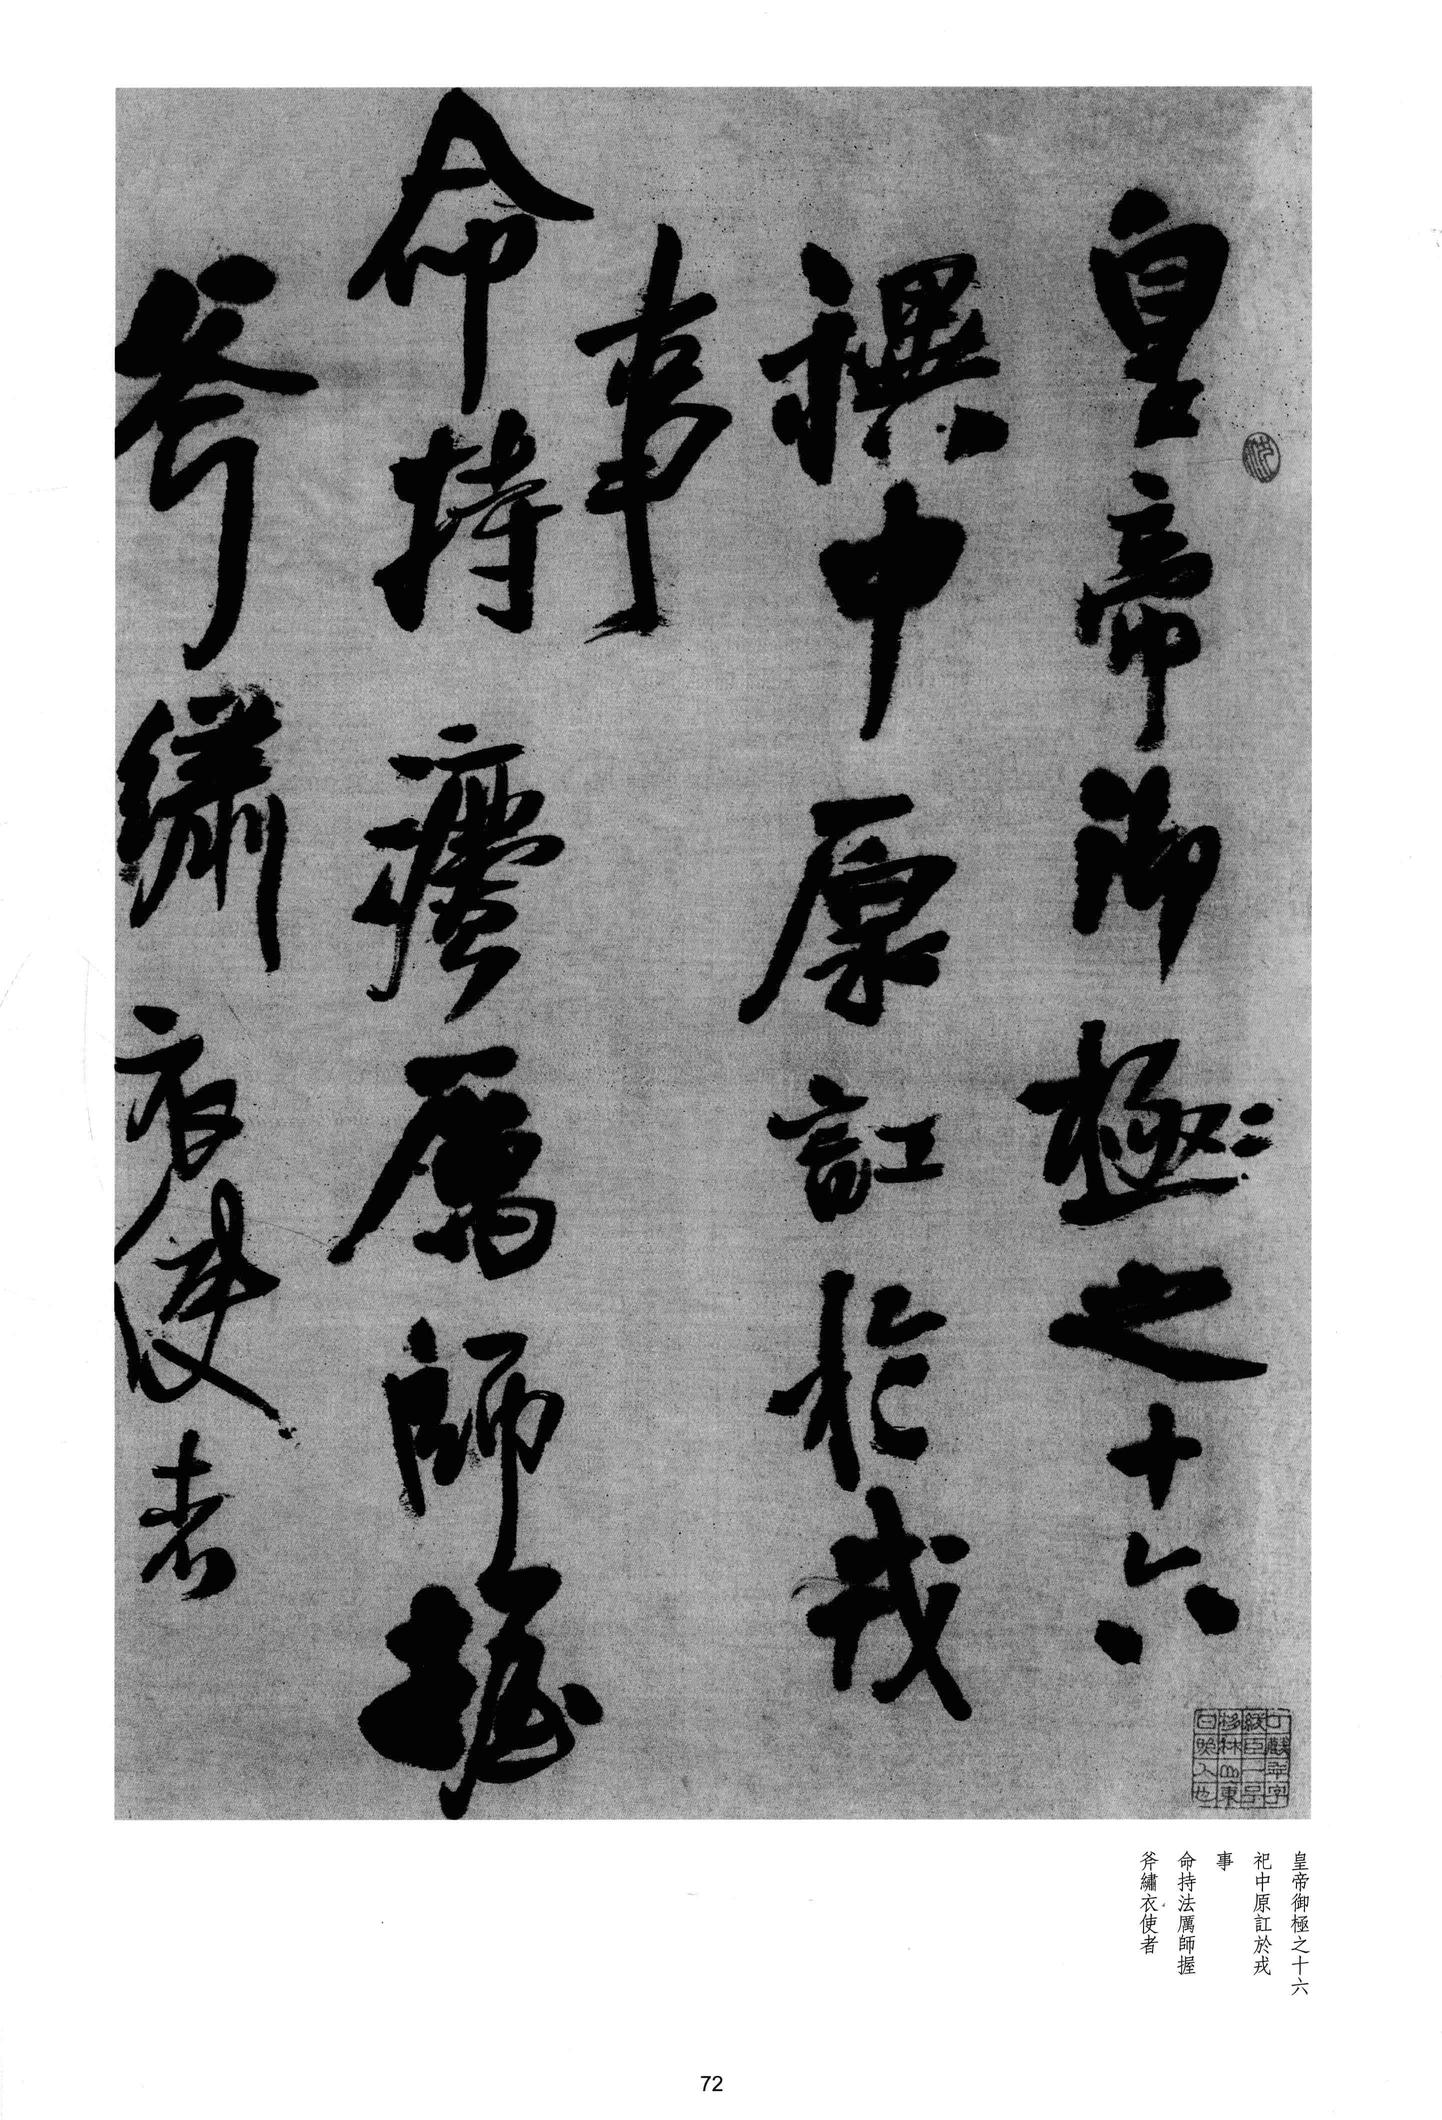 皇帝御極之十六
禩中原訌於戎
事
命持灋厲師握
斧繡衣使者
皇帝御極之十六
祀中原訌於戎
事
命持法厲師握
斧繡衣使者
72